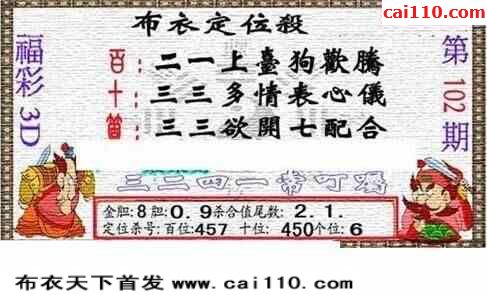 cai110.com
布衣定位殺
福彩3D
第102期
百：二一上臺狗歡騰
十：三三多情表心儀
箇：三三欲開七配合
三二四一常叮嚀
金胆:8胆:0.9杀合值尾数: 2.1.
定位杀号:百位:457 十位: 450个位:6
布衣天下首发 www.cai110.com